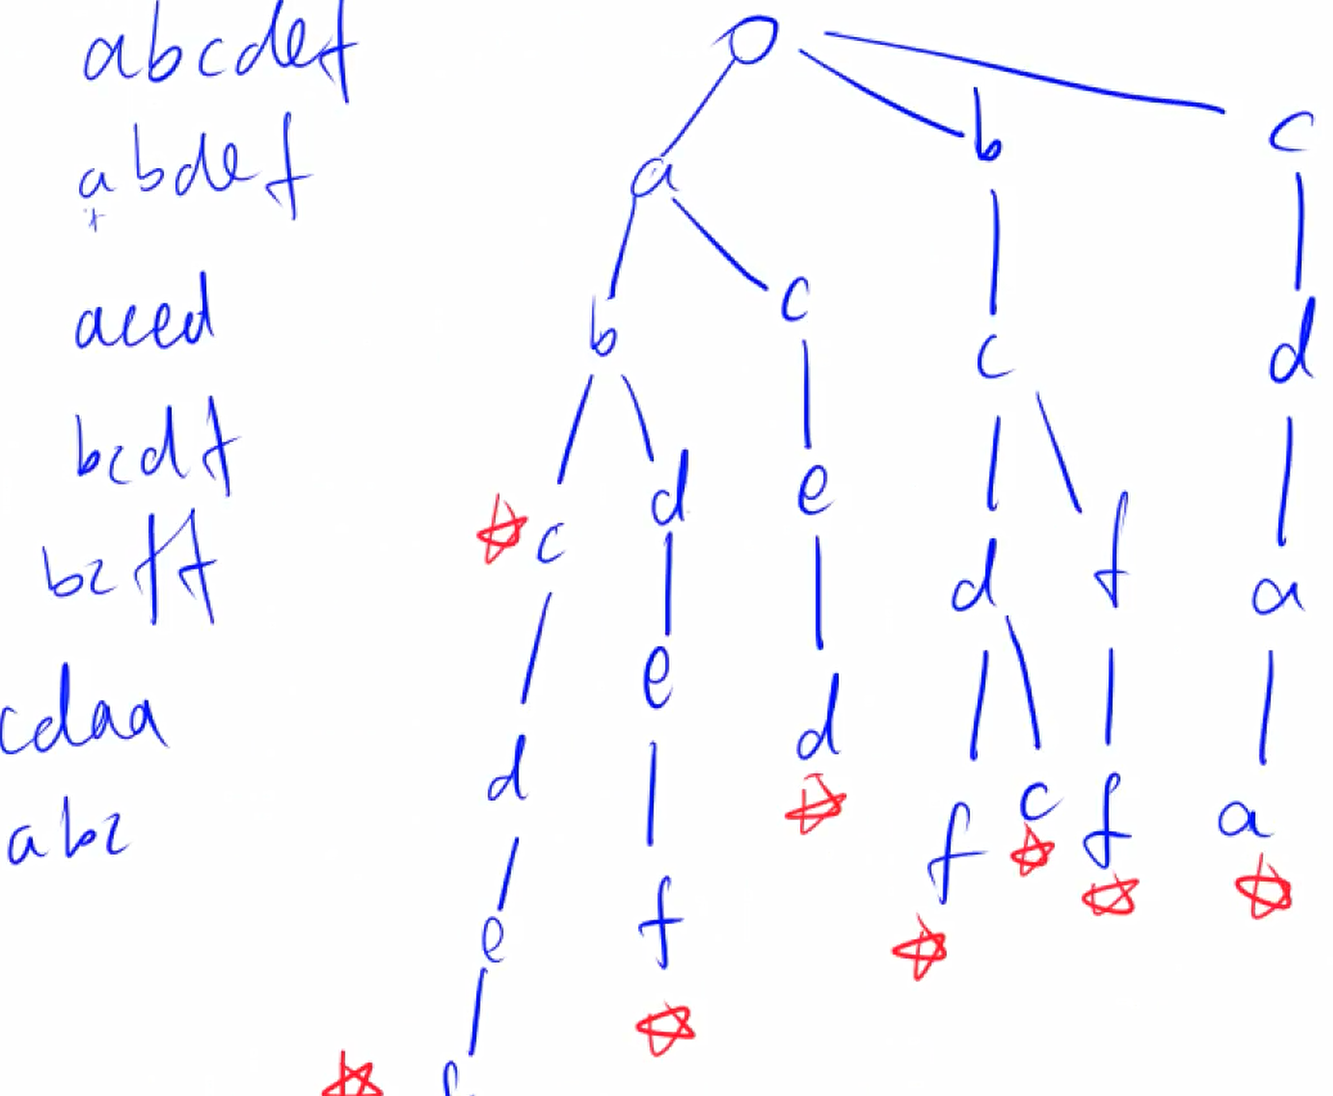 abcdef
abdef
aced
bcdf
bcff
cdaa
abc
a b c
b c c d
c d e d f a
d e d f c f a
e f